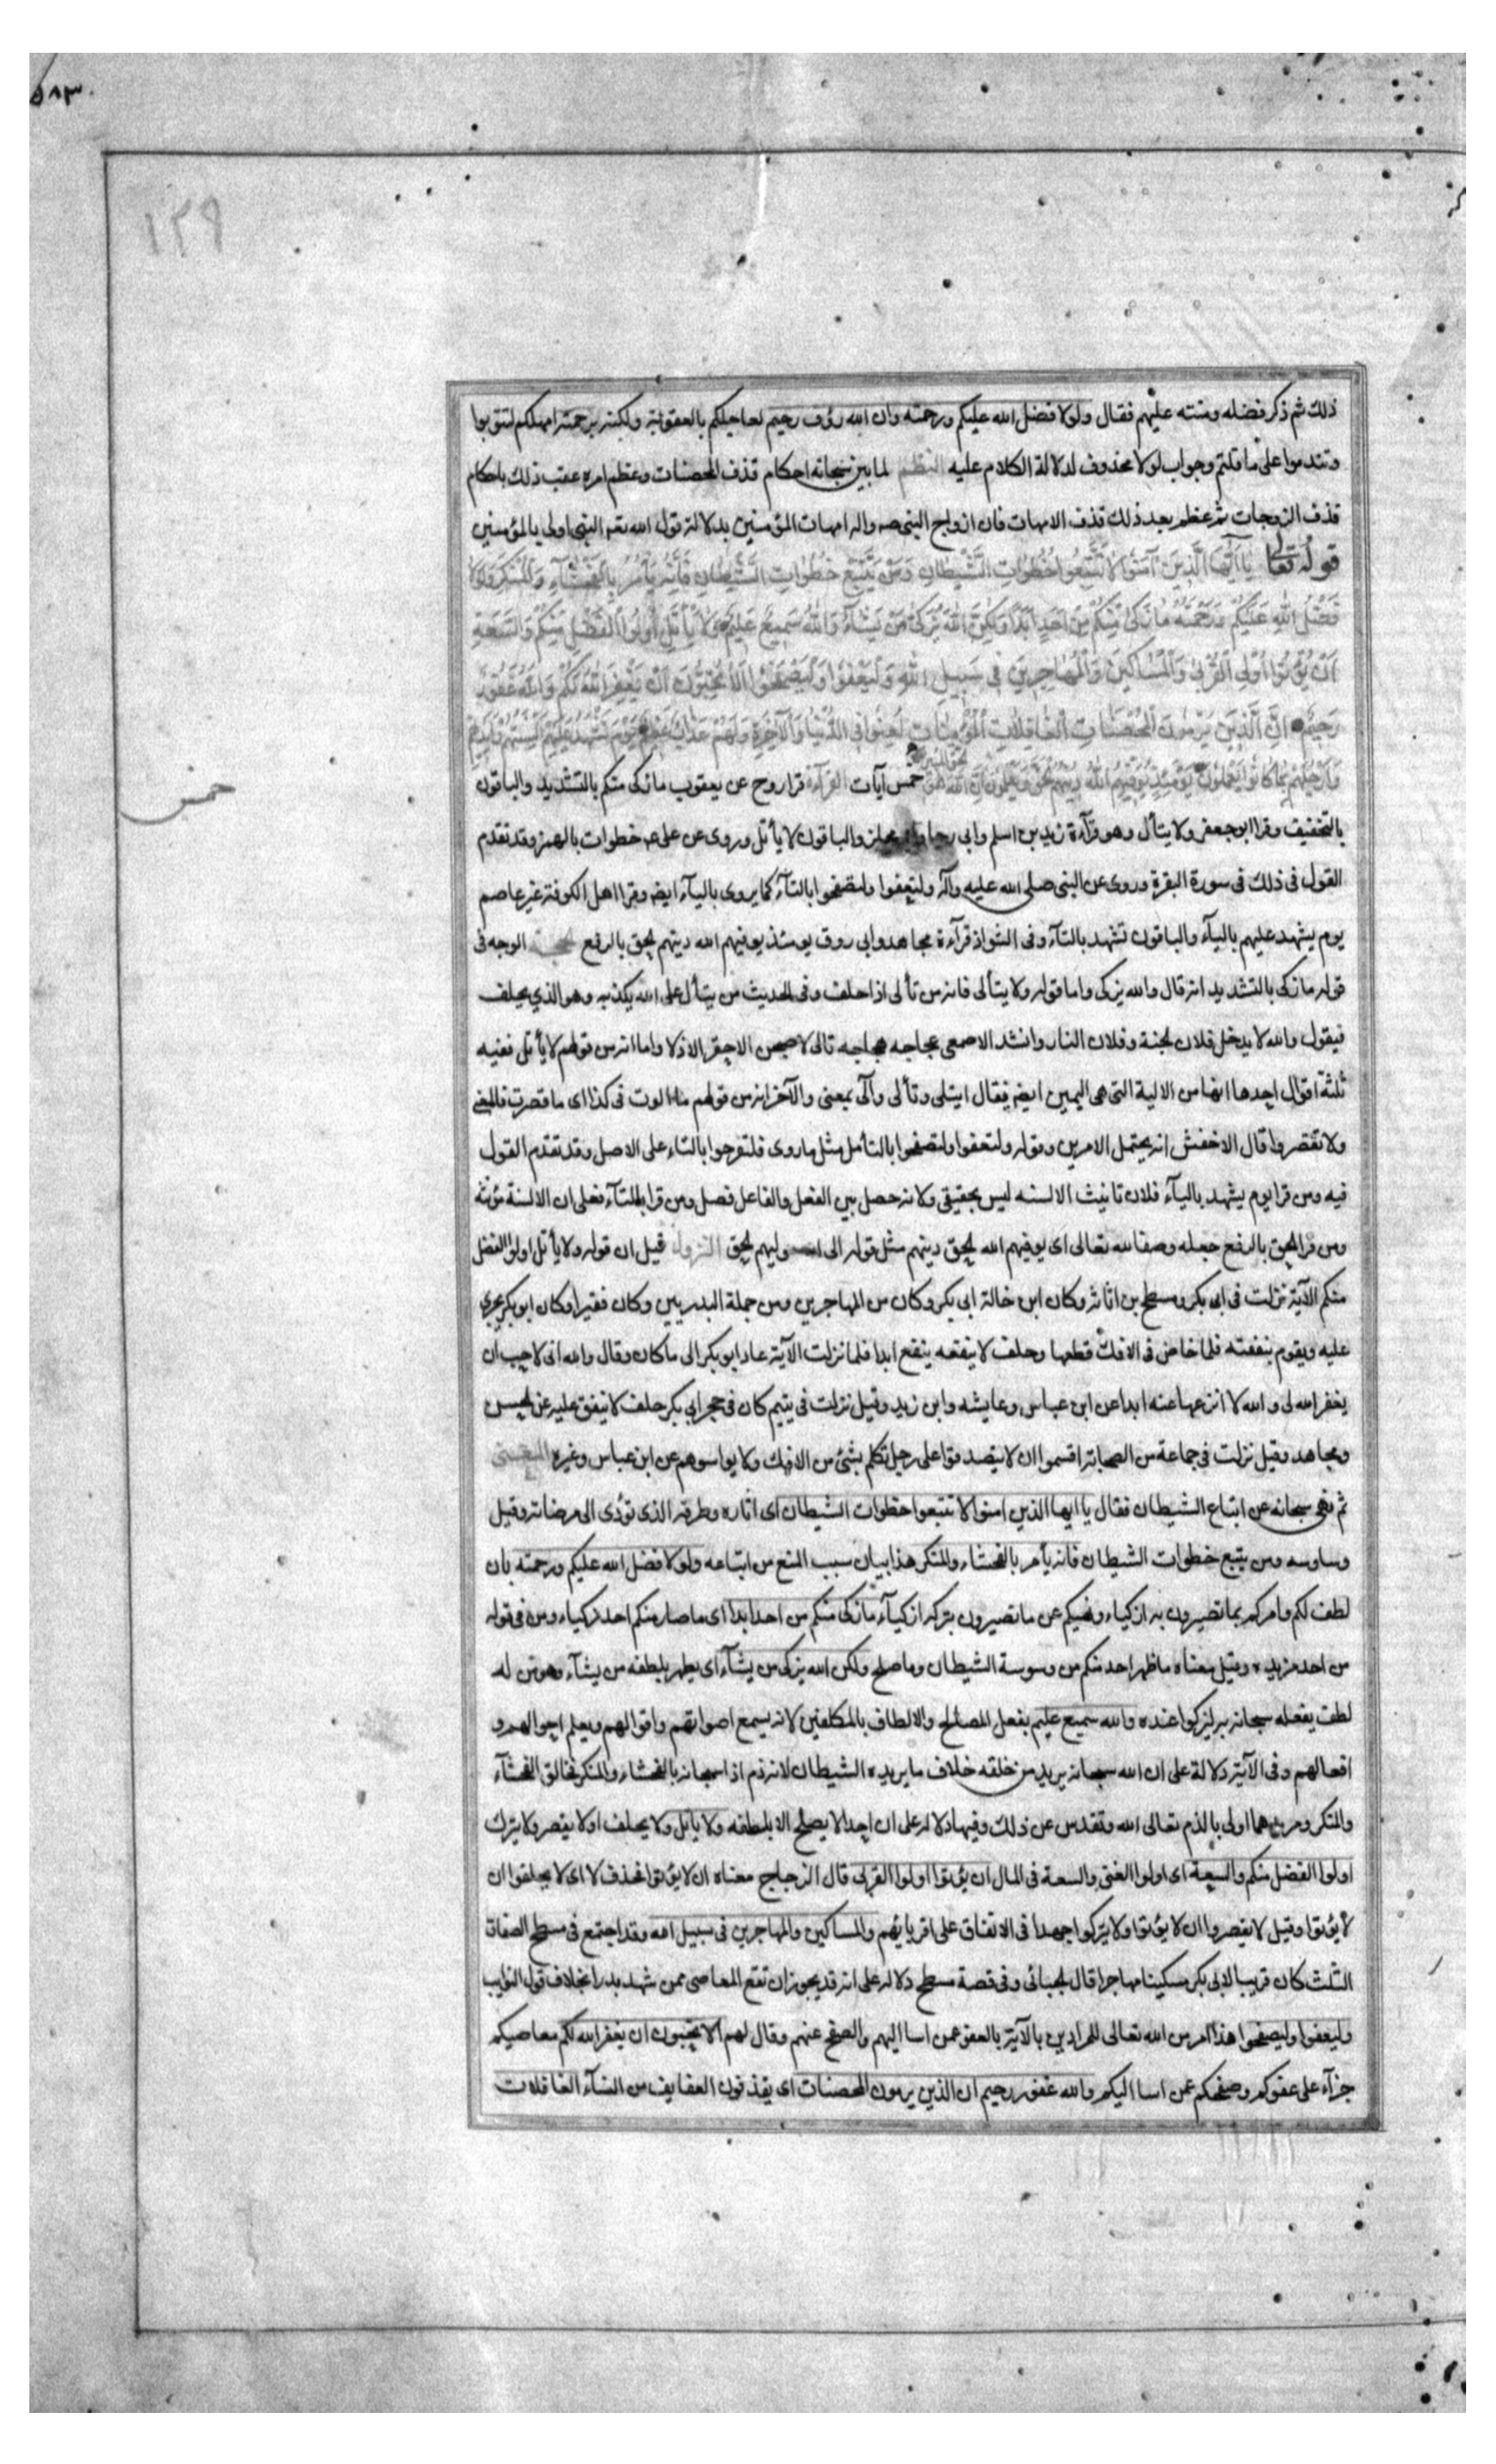 ٥٨٣
١٢٩
ذلك ثم ذكر فضله ومنته عليهم فقال ولولا فضل الله عليكم ورحمته وان الله رؤف رحيم لعاجلكم بالعقوبة ولكنه برحمته امهلكم لتتوبوا
وتندموا على ما قلتم وجواب لولا محذوف لدلالة الكلام عليه النظم لما بين سبحانه احكام قذف المحصنات وعظم امره عقب ذلك باحكام
قذف الزوجات ثم عظم بعد ذلك قذف الامهات فان ازواج النبي صه واله امهات المؤمنين بدلالة قول الله تعه النبي اولى بالمؤمنين
قوله تعالى يَا أَيُّهَا الَّذِينَ آمَنُوا لَا تَتَّبِعُوا خُطُوَاتِ الشَّيْطَانِ وَمَنْ يَتَّبِعْ خُطُوَاتِ الشَّيْطَانِ فَإِنَّهُ يَأْمُرُ بِالْفَحْشَاءِ وَالْمُنْكَرِ وَلَوْلَا
فَضْلُ اللهِ عَلَيْكُمْ وَرَحْمَتُهُ مَا زَكَى مِنْكُمْ مِنْ أَحَدٍ أَبَدًا وَلَكِنَّ اللهَ يُزَكِّي مَنْ يَشَاءُ وَاللهُ سَمِيعٌ عَلِيمٌ وَلَا يَأْتَلِ أُولُوا الْفَضْلِ مِنْكُمْ وَالسَّعَةِ
أَنْ يُؤْتُوا أُولِي الْقُرْبَى وَالْمَسَاكِينَ وَالْمُهَاجِرِينَ فِي سَبِيلِ اللهِ وَلْيَعْفُوا وَلْيَصْفَحُوا أَلَا تُحِبُّونَ أَنْ يَغْفِرَ اللهُ لَكُمْ وَاللهُ غَفُورٌ
رَحِيمٌ إِنَّ الَّذِينَ يَرْمُونَ الْمُحْصَنَاتِ الْغَافِلَاتِ الْمُؤْمِنَاتِ لُعِنُوا فِي الدُّنْيَا وَالْآخِرَةِ وَلَهُمْ عَذَابٌ عَظِيمٌ يَوْمَ تَشْهَدُ عَلَيْهِمْ أَلْسِنَتُهُمْ وَأَيْدِيهِمْ
وَأَرْجُلُهُمْ بِمَا كَانُوا يَعْمَلُونَ يَوْمَئِذٍ يُوَفِّيهِمُ اللهُ دِينَهُمُ الْحَقَّ وَيَعْلَمُونَ أَنَّ اللهَ هُوَ الْحَقُّ الْمُبِينُ خمس آيات القرآءة قرا روح عن يعقوب ما زكى منكم بالتشديد والباقون
خمس
بالتخفيف وقرا ابو جعفر ولا يتأل وهو قرآءة زيد بن اسلم وابي رجا وابي مجلز والباقون لا يأتل وروى عن على عه خطوات بالهمز وقد تقدم
القول فى ذلك فى سورة البقرة وروى عن النبى صلى الله عليه وآله ولتعفوا ولتصفحوا بالتآء كما يروى باليآء ايضه وقرا اهل الكوفة غير عاصم
يوم يشهد عليهم باليآء والباقون تشهد بالتآء وفى الشواذ قرآءة مجاهد وابى روق يومئذ يوفيهم الله دينهم الحق بالرفع الحجة الوجه فى
قوله ما زكى بالتشديد انه قال والله يزكى واما قوله ولا يتألى فانه من تألى اذا حلف وفى الحديث من يتأل على الله يكذبه وهو الذي يحلف
فيقول والله لا يدخل فلان الجنة وفلان النار وانشد الاصمعى عجاجه هجاجه تالى لاصبحن الاحقر الاذلا واما انه من قولهم لا يأتل ففيه
ثلثة اقوال احدها انها من الالية التى هى اليمين ايضه فيقال ايتلى وتألى وآلى بمعنى والآخر انه من قولهم ما الوت فى كذا اى ما قصرت فالمعنى
ولا تقصروا قال الاخفش انه يحتمل الامرين وقوله ولتعفوا ولتصفحوا بالتآ مثل ما روى فلتفرحوا بالتاء على الاصل وقد تقدم القول
فيه ومن قرا يوم يشهد باليآء فلان تانيث الالسنه ليس بحقيقى ولانه حصل بين الفعل والفاعل فصل ومن قرا بالتآء فعلى ان الالسنة مؤنثه
ومن قرا الحق بالرفع جعله وصفا لله تعالى اى يوفيهم الله الحق دينهم مثل قوله الى الله موليهم الحق النزول قيل ان قوله ولا يأتل اولوا الفضل
منكم الآية نزلت فى ابى بكر ومسطح بن اثاثة وكان ابن خالة ابى بكر وكان من المهاجرين ومن جملة البدريين وكان فقيرا وكان ابو بكر يجري
عليه ويقوم بنفقته فلما خاض فى الافك قطعها وحلف لا ينفعه بنفع ابدا فلما نزلت الآية عاد ابو بكر الى ما كان وقال والله انى لاحب ان
يغفر الله لى والله لا انزعها عنه ابدا عن ابن عباس وعايشه وابن زيد وقيل نزلت فى يتيم كان فى حجر ابى بكر حلف لا ينفق عليه عن الحسن
ومجاهد وقيل نزلت فى جماعة من الصحابة اقسموا ان لا يتصدقوا على رجل تكلم بشئ من الافك ولا يواسوهم عن ابن عباس وغيره المعنى
ثم نهى سبحانه عن اتباع الشيطان فقال يا ايها الذين امنوا لا تتبعوا خطوات الشيطان اى اثاره وطرقه الذى تؤدى الى مرضاته وقيل
وساوسه ومن يتبع خطوات الشيطان فانه يأمر بالفحشاء والمنكر هذا بيان سبب المنع من اتباعه ولولا فضل الله عليكم ورحمته بان
لطف لكم وامركم بما تصيرون به ازكياء ونهيكم عن ما تصيرون بتركه ازكيآء ما زكى منكم من احد ابدا اى ما صار منكم احد زكياء ومن فى قوله
من احد مزيده وقيل معناه ما ظهر احد منكم من وسوسة الشيطان وما صلح ولكن الله يزكى من يشآء اى يطهر بلطفه من يشآء وهو من له
لطف يفعله سبحانه به ليزكوا عنده والله سميع عليم بفعل المصالح والالطاف بالمكلفين لانه يسمع اصواتهم واقوالهم ويعلم احوالهم و
افعالهم وفى الآية دلالة على ان الله سبحانه يريد من خلقه خلاف ما يريده الشيطان لانه ذم اذا سبحانه بالفحشاء والمنكر فخالق الفحشآء
والمنكر ومريدهما اولى بالذم تعالى الله وتقدس عن ذلك وفيها دلاله على ان احدا لا يصلح الا بلطفه ولا ياتل ولا يحلف او لا يقصر ولا يترك
اولوا الفضل منكم والسعة اى اولوا الغنى والسعة فى المال ان يؤتوا اولوا القربى قال الزجاج معناه ان لا يؤتوا فحذف لا اى لا يحلفوا ان
لا يؤتوا وقيل لا يقصروا ان لا يؤتوا ولا يتركوا جهدا فى الانفاق على اقربايهم والمساكين والمهاجرين فى سبيل الله وقد اجتمع فى مسطح الصفات
الثلث كان قريبا لابى بكر مسكينا مهاجرا قال الجبائى وفى قصة مسطح دلاله على انه قد يجوز ان تقع المعاصى ممن شهد بدرا بخلاف قول النوايب
وليعفوا وليصفحوا هذا امر من الله تعالى للمرادين بالآية بالعفو عمن اسا اليهم والصفح عنهم وقال لهم الا تحبون ان يغفر الله لكم معاصيكم
جزآء على عفوكم وصفحكم عمن اسا اليكم والله غفور رحيم ان الذين يرمون المحصنات اى يقذفون العفايف من النسآء الغافلات